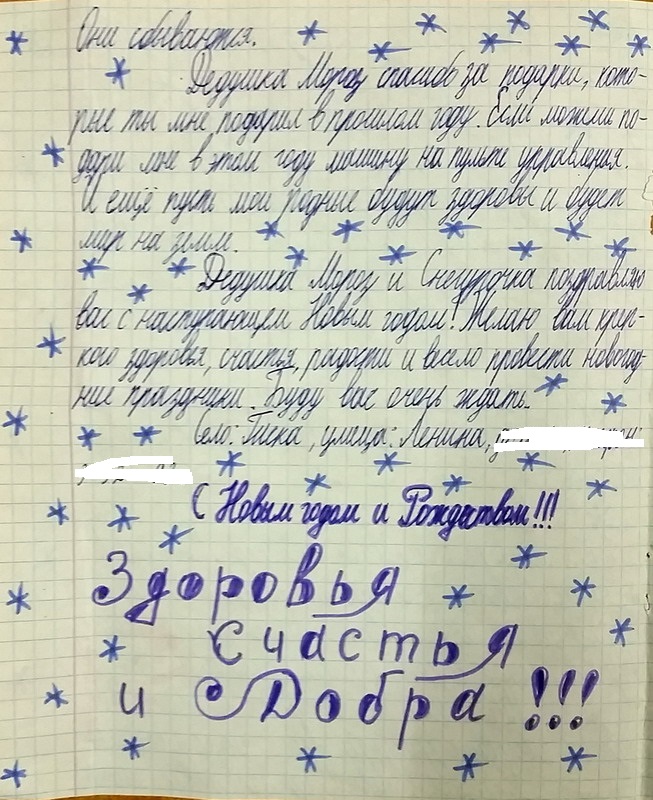 Они сбываются.
Дедушка Мороз спасибо за подарки, кото-
рые ты мне подарил в прошлом году. Если можеш по-
дари мне в этом году машину на пульте управления.
И ещё пусть мои родные будут здоровы и будет
мир на земли.
Дедушка Мороз и Снегурочка поздравляю
вас с наступающем Новым годом! Желаю вам креп-
кого здоровья, счастья, радости и весело провести новогод-
ние праздники. Буду вас очень ждать.
Село: Гиска, улица: Ленина,
С Новым годом и Рождеством!!!
Здоровья
Счастья
и Добра !!!